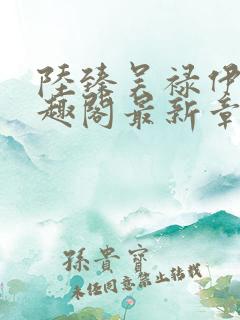 陸臻吴禄伊
趣阁最新章
孫貴寶
未经同意禁止转载